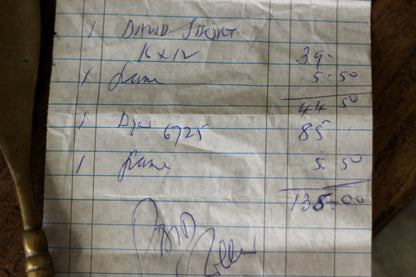 1 DAVID SHORT
K x 12 39-
1 frame 5-50
44 50
1 6725 85
1 frame 5.50
135-00